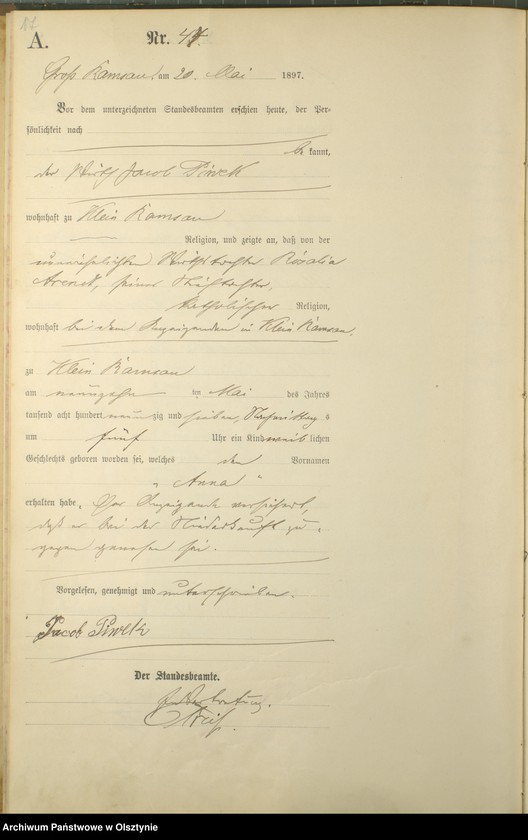 17
A.
Nr. 47.
Groß Ramsau, am 20. Mai 1897.
Vor dem unterzeichneten Standesbeamten erschien heute, der Per-
sönlichkeit nach
be kannt,
der Wirth Jacob Piwek
wohnhaft zu Klein Ramsau
Religion, und zeigte an, daß von der
unverehelichten Wirthstochter Rosalia
Arendt, seiner Stieftochter,
katholischer Religion,
wohnhaft bei dem Anzeigenden in Klein Ramsau,
zu Klein Ramsau
am neunzehn ten Mai des Jahres
tausend acht hundert neun zig und sieben, Nachmittags
um fünf Uhr ein Kind weib lichen
Geschlechts geboren worden sei, welches den Vornamen
„ Anna “
erhalten habe. Der Anzeigende versichert,
daß er bei der Niederkunft zu-
gegen gewesen sei.
Vorgelesen, genehmigt und unterschrieben.
Jacob Piwek
Der Standesbeamte.
In Vertretung.
Archiwum Państwowe w Olsztynie